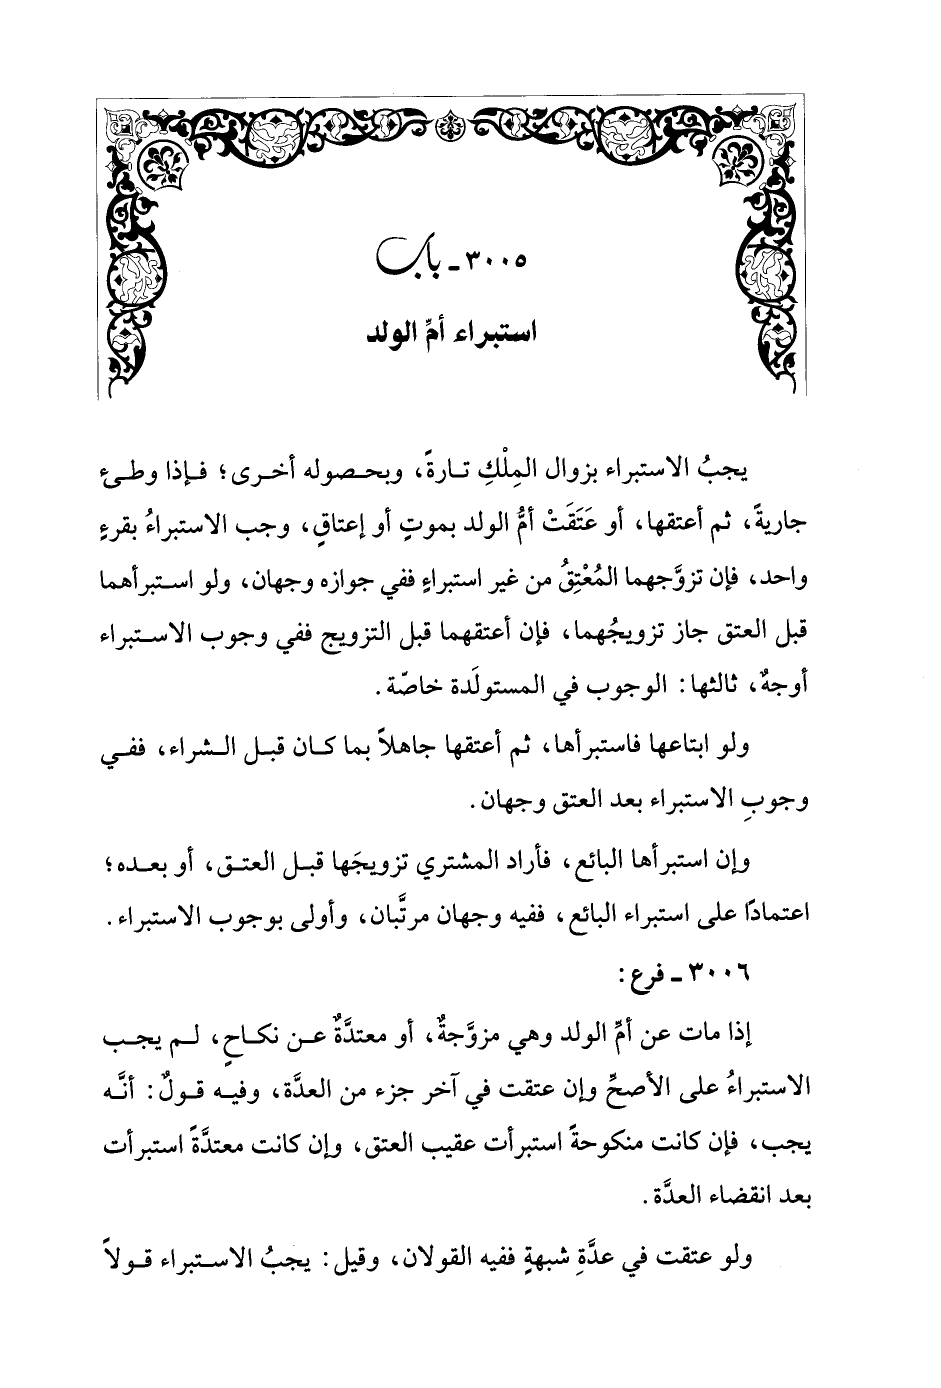 ٣٠٠٥ ـ باب
استبراء أمِّ الولد
يجبُ الاستبراء بزوال المِلْكِ تارةً، وبحصوله أخرى؛ فإذا وطئ
جاريةً، ثم أعتقها، أو عَتَقَتْ أمُّ الولد بموتٍ أو إعتاقٍ، وجب الاستبراءُ بقرءٍ
واحد، فإن تزوَّجهما المُعْتِقُ من غير استبراءٍ ففي جوازه وجهان، ولو استبرأهما
قبل العتق جاز تزويجُهما، فإن أعتقهما قبل التزويج ففي وجوب الاستبراء
أوجهٌ، ثالثها: الوجوب في المستولَدة خاصّة.
ولو ابتاعها فاستبرأها، ثم أعتقها جاهلاً بما كان قبل الشراء، ففي
وجوبِ الاستبراء بعد العتق وجهان.
وإن استبرأها البائع، فأراد المشتري تزويجَها قبل العتق، أو بعده؛
اعتمادًا على استبراء البائع، ففيه وجهان مرتَّبان، وأولى بوجوب الاستبراء.
٣٠٠٦ ـ فرع:
إذا مات عن أمِّ الولد وهي مزوَّجةٌ، أو معتدَّةٌ عن نكاحٍ، لم يجب
الاستبراءُ على الأصحِّ وإن عتقت في آخر جزء من العدَّة، وفيه قولٌ: أنَّه
يجب، فإن كانت منكوحةً استبرأت عقيب العتق، وإن كانت معتدَّةً استبرأت
بعد انقضاء العدَّة.
ولو عتقت في عدَّةِ شبهةٍ ففيه القولان، وقيل: يجبُ الاستبراء قولاً